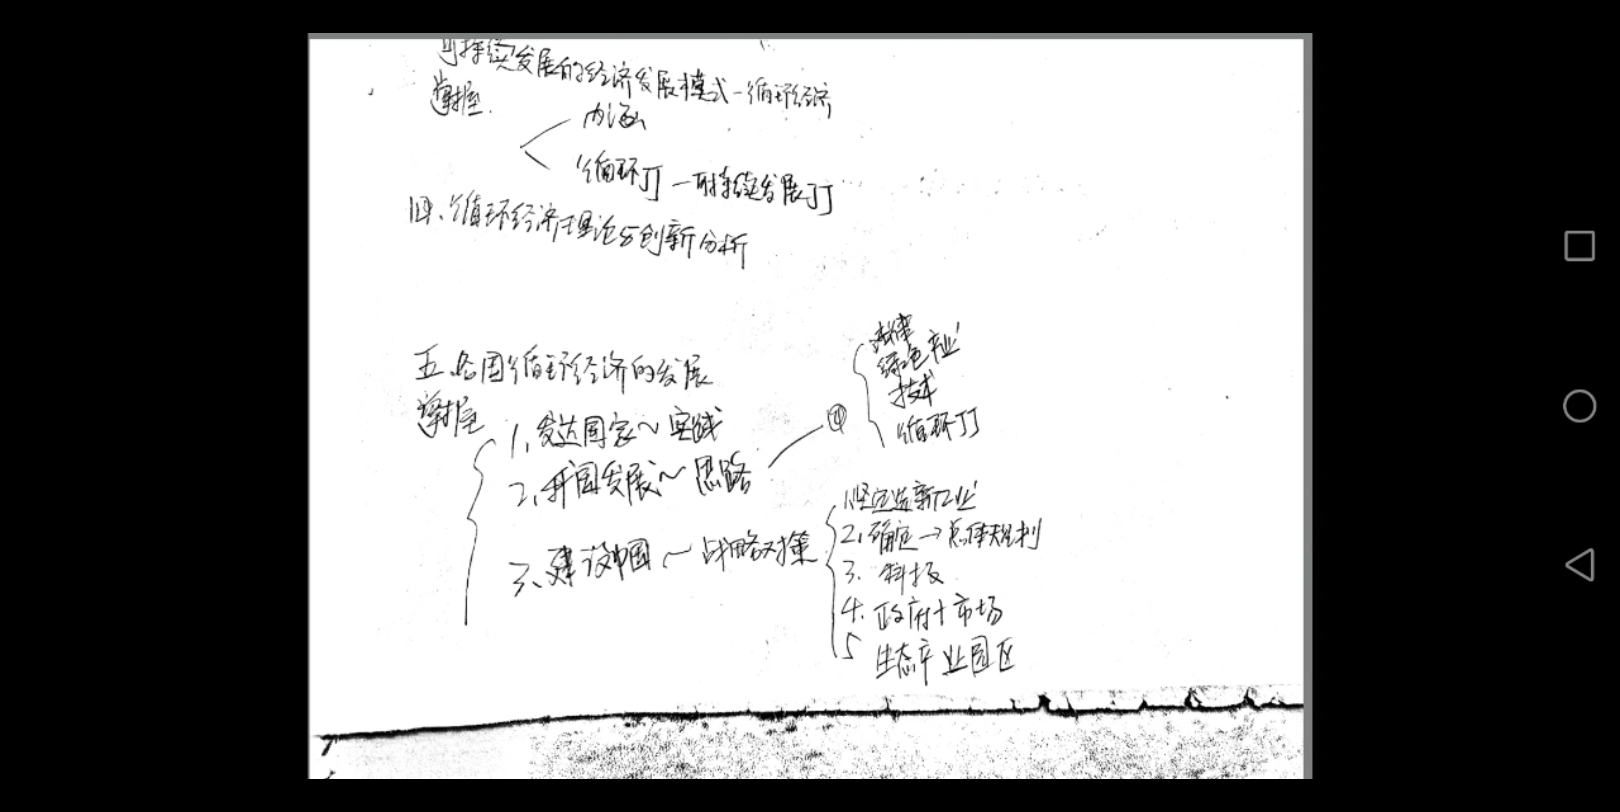 可持续发展的经济发展模式-循环经济
掌握
内涵
循环JJ — 可持续发展JJ
四、循环经济理论与创新分析
五、各国循环经济的发展
掌握
1、发达国家~实践
2、我国发展~思路
④
法律
绿色产业
技术
循环JJ
3、建设中国~战略对策
1、坚定
新工业
2、确定→总体规划
3. 科技
4. 政府+市场
5 生态产业园区